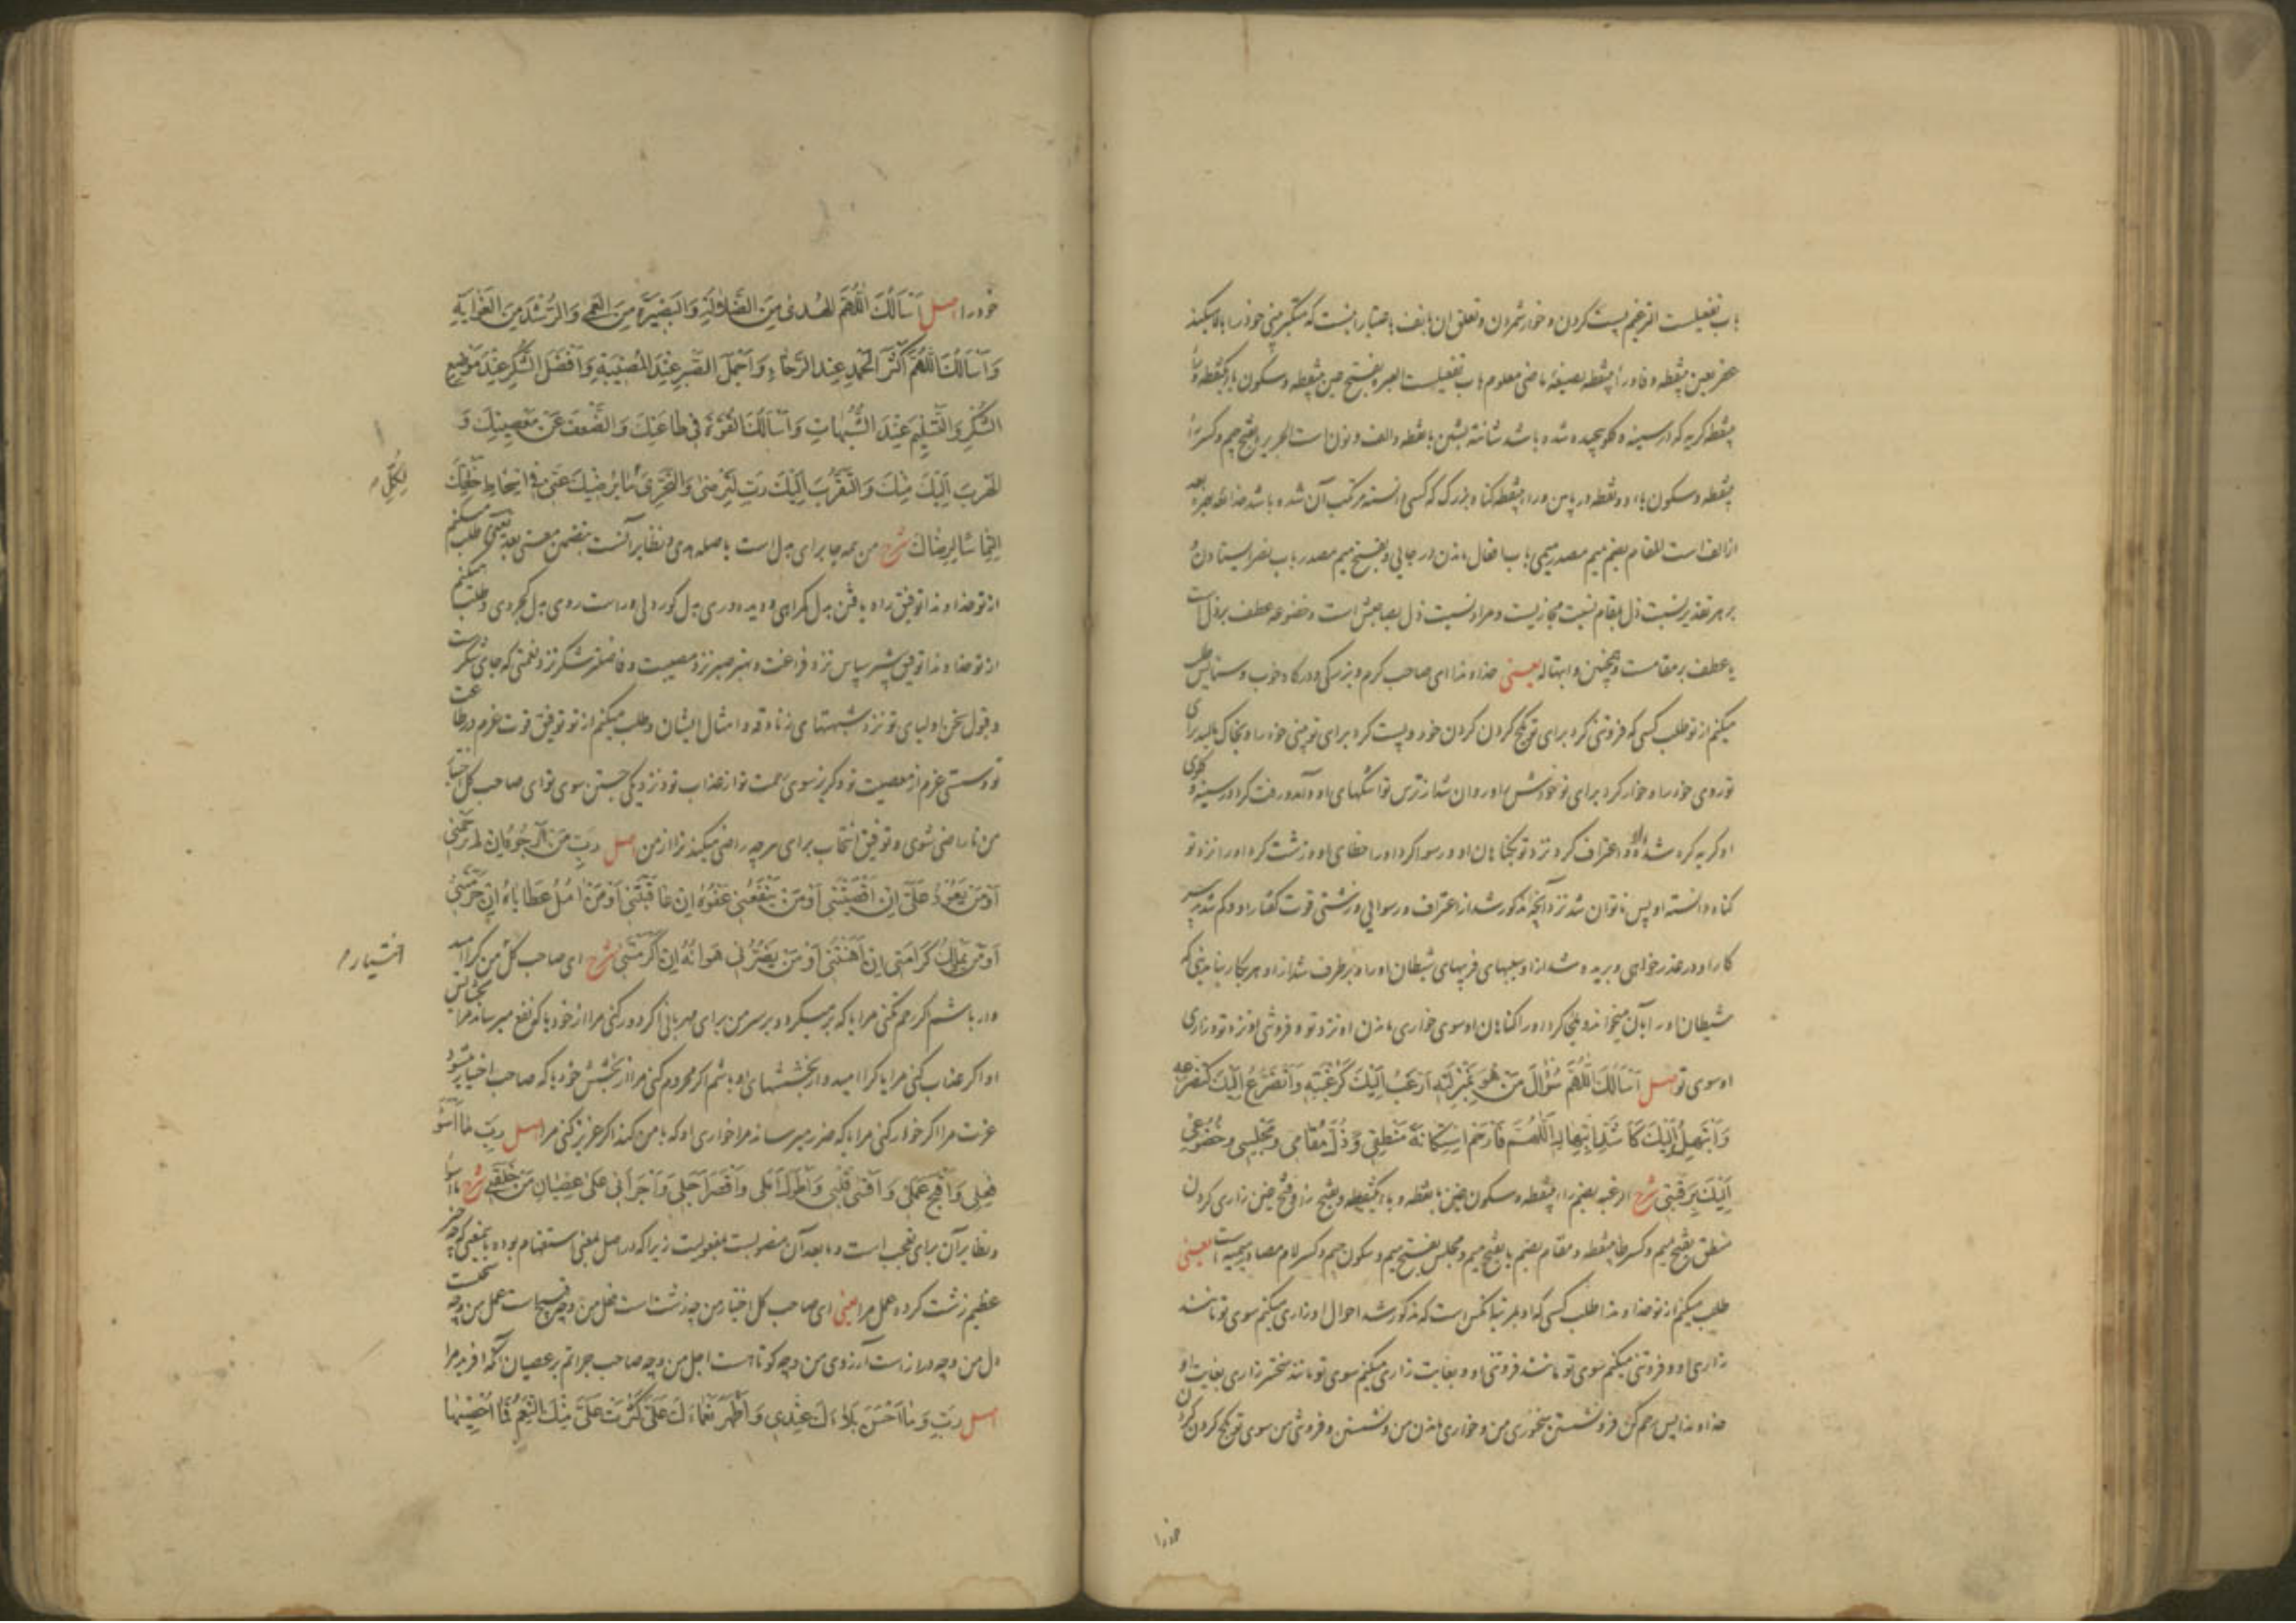 باب تفعیلست الترغیم پست کردن و خوار شمردن و تعلق ان بانف باعتبار اینست که متکبر بینی خود را بالا میکند
عفر بعین بینقطه و فاو راء بینقطه بصیغهٔ ماضی معلوم باب تفعیلست العبره بفتح عین بینقطه و سکون باء یکنقطه و راء
بینقطه گریه که در سینه و گلو پیچیده شده باشد شانه بشین با نقطه و الف و نون است الجریره بفتح جیم و کسر راء
بینقطه و سکون یاء دو نقطه در پایین و راء بینقطه گناه بزرگ که کسی دانسته مرتکب آن شده باشد
از الف است المقام بضم میم مصدر میمی باب افعال ماندن در جایی و بفتح میم مصدر باب نصر ایستادن و
بر هر تقدیر نسبت ذل بمقام نسبت مجازیست و مراد نسبت ذل بصاحبش است و خضوعه عطف بر ذل است
یا عطف بر مقامست و همچنین و ابتهاله یعنی خداوندا ای صاحب کرم و بزرگی و درگاه خوب و ستایش طلب
میکنم از تو طلب کسی که فروتنی کرد برای تو کج کردن گردن خود و پست کرد برای تو بینی خود را و بخاک مالید برای
تو روی خود را و خوار کرد برای تو خودش را و روان شد از ترس تو اشکهای او و آمد و رفت کرد در سینه و گلوی
او گریه کره شده او و اعتراف کرد نزد تو بگناهان او و رسوا کرد او را خطای او و زشت کرد او را نزد تو
گناه دانسته او پس ناتوان شد نزد آنچه مذکور شد از اعتراف و رسوایی و زشتی قوت گفتار او و کم شد تدبیر
کار او در عذر خواهی و بریده شد از او سببهای فریبهای شیطان او را و برطرف شد از او هر بکار نیامدنی که
شیطان او را بآن میخواند و ملجا کرد او را گناهان او سوی خواری ماندن او نزد تو و فروتنی او نزد تو و زاری
او سوی تو اصل اَسْاَلُكَ اللّٰهُمَّ سُؤٰالَ مَنْ هُوَ بِمَنْزِلَتِهِ اَرْغَبُ اِلَيْكَ كَرَغْبَتِهِ وَاَتَضَرَّعُ اِلَيْكَ كَتَضَرُّعِهِ
وَاَبْتَهِلُ اِلَيْكَ كَاَشَدِّ ابْتِهٰالِهِ اَللّٰهُمَّ فَارْحَمِ اسْتِكٰانَةَ مَنْطِقِي وَذُلَّ مَقٰامِي وَمَجْلِسِي وَخُضُوعِي
اِلَيْكَ بِرَقَبَتِي شرح الرغبه بضم راء بینقطه و سکون غین با نقطه و باء یکنقطه و بفتح راء و فتح غین زاری کردن
منطق بفتح میم و کسر طاء بینقطه و مقام بضم یا بفتح میم و مجلس بفتح میم و سکون جیم و کسر لام مصادر میمیه است یعنی
طلب میکنم از تو خداوندا طلب کسی که او بمرتبه آنکس است که مذکور شد احوال او زاری میکنم سوی تو مانند
زاری او و فروتنی میکنم سوی تو مانند فروتنی او و بغایت زاری میکنم سوی تو مانند سختتر زاری بغایت او
خداوندا پس رحم کن فرونشستن سخنوری من و خواری ماندن من و نشستن و فروتنی من سوی تو بکج کردن گردن
خود را
خود را اصل اَسْاَلُكَ اللّٰهُمَّ الْهُدىٰ مِنَ الضَّلاٰلَةِ وَالْبَصِيرَةَ مِنَ الْعَمىٰ وَالرُّشْدَ مِنَ الْغَوٰايَةِ
وَاَسْاَلُكَ اللّٰهُمَّ اَكْثَرَ الْحَمْدِ عِنْدَ الرَّخٰاءِ وَاَجْمَلَ الصَّبْرِ عِنْدَ الْمُصِيبَةِ وَاَفْضَلَ الشُّكْرِ عِنْدَ مَوْضِعِ
الشُّكْرِ وَالتَّسْلِيمَ عِنْدَ الشُّبُهٰاتِ وَاَسْاَلُكَ الْقُوَّةَ فِي طٰاعَتِكَ وَالضَّعْفَ عَنْ مَعْصِيَتِكَ وَ
الْهَرَبَ اِلَيْكَ مِنْكَ وَالتَّقَرُّبَ اِلَيْكَ رَبِّ لِتَرْضىٰ وَالتَّحَرِّيَ لِكُلِّ مٰا يُرْضِيكَ عَنِّي فِي اِسْخٰاطِ خَلْقِكَ
اِلْتِمٰاسًا لِرِضٰاكَ شرح من همه جا برای بدل است یا صله هدی و نظایر آنست بتضمن معنی بعد یعنی طلب میکنم
از تو خداوندا توفیق راه یافتن بدل گمراهی و دیده وری بدل کوردلی و راست روی بدل کجروی و طلب میکنم
از تو خداوندا توفیق بیشتر سپاس نزد فراغت و بهتر صبر نزد مصیبت و فاضلتر شکر نزد نعمتی که جای شکر است
و قبول سخن اولیای تو نزد شبهتهای زنادقه و امثال ایشان و طلب میکنم از تو توفیق قوت عزم در طاعت
تو و سستی عزم از معصیت تو و گریز سوی رحمت تو از عذاب تو و نزدیکی جستن سوی تو ای صاحب کل اختیار
من تا راضی شوی و توفیق انتخاب برای هر چه راضی میکند ترا از من اصل رَبِّ مَنْ اَرْجُوهُ اِنْ لَمْ تَرْحَمْنِي
اَوْ مَنْ يَعُودُ عَلَيَّ اِنْ اَقْصَيْتَنِي اَوْ مَنْ يَنْفَعُنِي عَفْوُهُ اِنْ عٰاقَبْتَنِي اَوْ مَنْ اٰمُلُ عَطٰايٰاهُ اِنْ حَرَمْتَنِي
اَوْ مَنْ يَمْلِكُ كَرٰامَتِي اِنْ اَهَنْتَنِي اَوْ مَنْ يَضُرُّنِي هَوٰانُهُ اِنْ اَكْرَمْتَنِي شرح ای صاحب کل اختیار من کرا امید
وار باشم اگر رحم نکنی مرا یا که برمیگردد بر سر من برای مهربانی اگر دور کنی مرا از خود یا که نفع میرساند مرا بخشایش
او اگر عذاب کنی مرا یا کرا امیدوار بخششهای او باشم اگر محروم کنی مرا از بخشش خود یا که صاحب اختیار میشود
عزت مرا اگر خوار کنی مرا یا که ضرر میرساند مرا خواری او که با من کند اگر عزیز کنی مرا اصل رَبِّ مٰا اَسْوَءَ
فِعْلِي وَاَقْبَحَ عَمَلِي وَاَقْسىٰ قَلْبِي وَاَطْوَلَ اَمَلِي وَاَقْصَرَ اَجَلِي وَاَجْرَاَنِي عَلىٰ عِصْيٰانِ مَنْ خَلَقَنِي شرح ما اسوأ
و نظایر آن برای تعجب است و مابعد آن منصوبست بمفعولیت زیرا که در اصل بمعنی استفهام بوده یعنی که چه چیز
عظیم زشت کرده عمل مرا یعنی ای صاحب کل اختیار من چه زشت است فعل من و چه قبیح است عمل من و چه سخت
دل من و چه دراز است آرزوی من و چه کوتاه است اجل من و چه صاحب جراتم بر عصیان آنکه افرید مرا
اصل رَبِّ وَمٰا اَحْسَنَ بَلاٰءَكَ عِنْدِي وَاَظْهَرَ نَعْمٰاءَكَ عَلَيَّ كَثُرَتْ عَلَيَّ مِنْكَ النِّعَمُ فَمٰا اُحْصِيهٰا
لِكُلِّ
اختیار